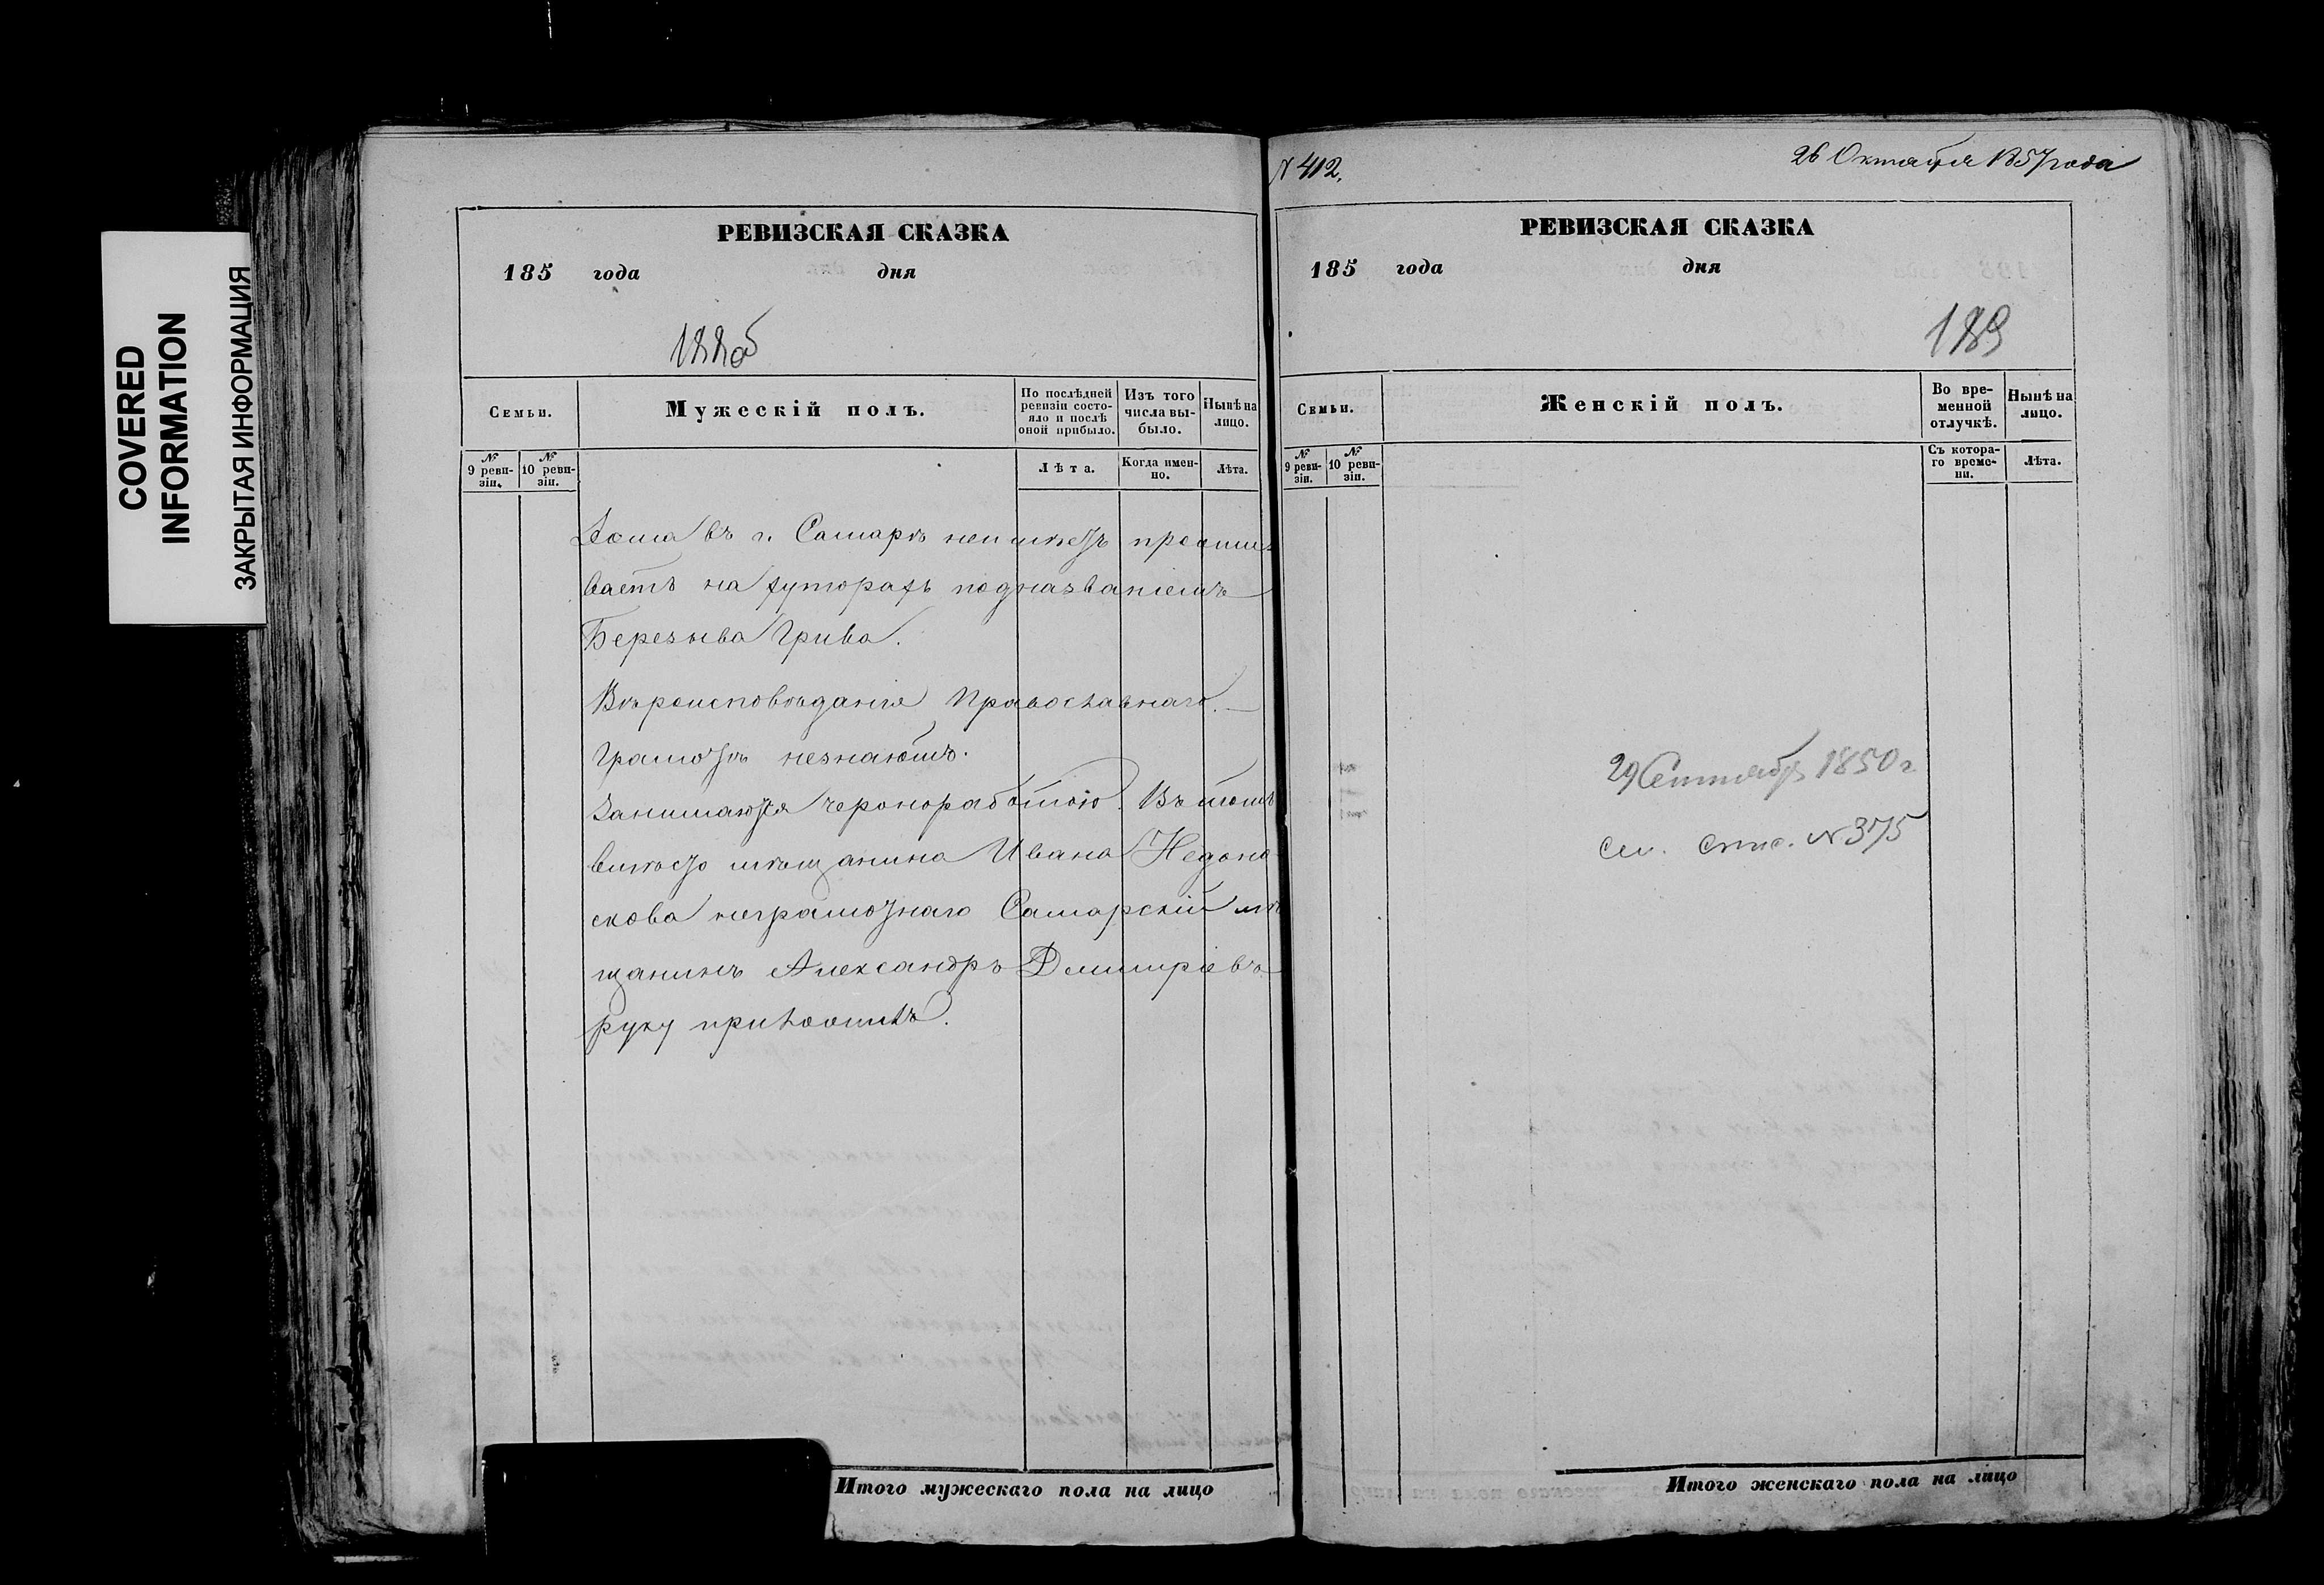 COVERED
INFORMATION
ЗАКРЫТАЯ ИНФОРМАЦИЯ
РЕВИЗСКАЯ СКАЗКА
185 года дня
188об
Семьи.
Мужескій полъ.
По послѣдней ревизіи состояло и послѣ оной прибыло.
Изъ того числа выбыло.
Нынѣ на лицо.
№ 9 ревизіи.
№ 10 ревизіи.
Лѣта.
Когда именно.
Лѣта.
Дома въ г. Самарѣ неимѣетъ прожи
ваетъ на хуторахъ подназваніемъ
Грива.
Вѣроисповѣданія Православнаго.
Грамотѣ незнаютъ.
Занимаются чернοработою. Въ томъ
вмѣсто мѣщанина Ивана Недоно
скова неграмотнаго Самарскій мѣ
щанинъ Александръ Дмитріевъ
руку приложилъ.
Итого мужескаго пола на лицо
№ 412.
26 Октября 1857 года
РЕВИЗСКАЯ СКАЗКА
185 года дня
189
Семьи.
Женскій полъ.
Во временной отлучкѣ.
Нынѣ на лицо.
№ 9 ревизіи.
№ 10 ревизіи.
Съ котораго времени.
Лѣта.
29 Сентябр 1850 г.
см. № 375
Итого женскаго пола на лицо